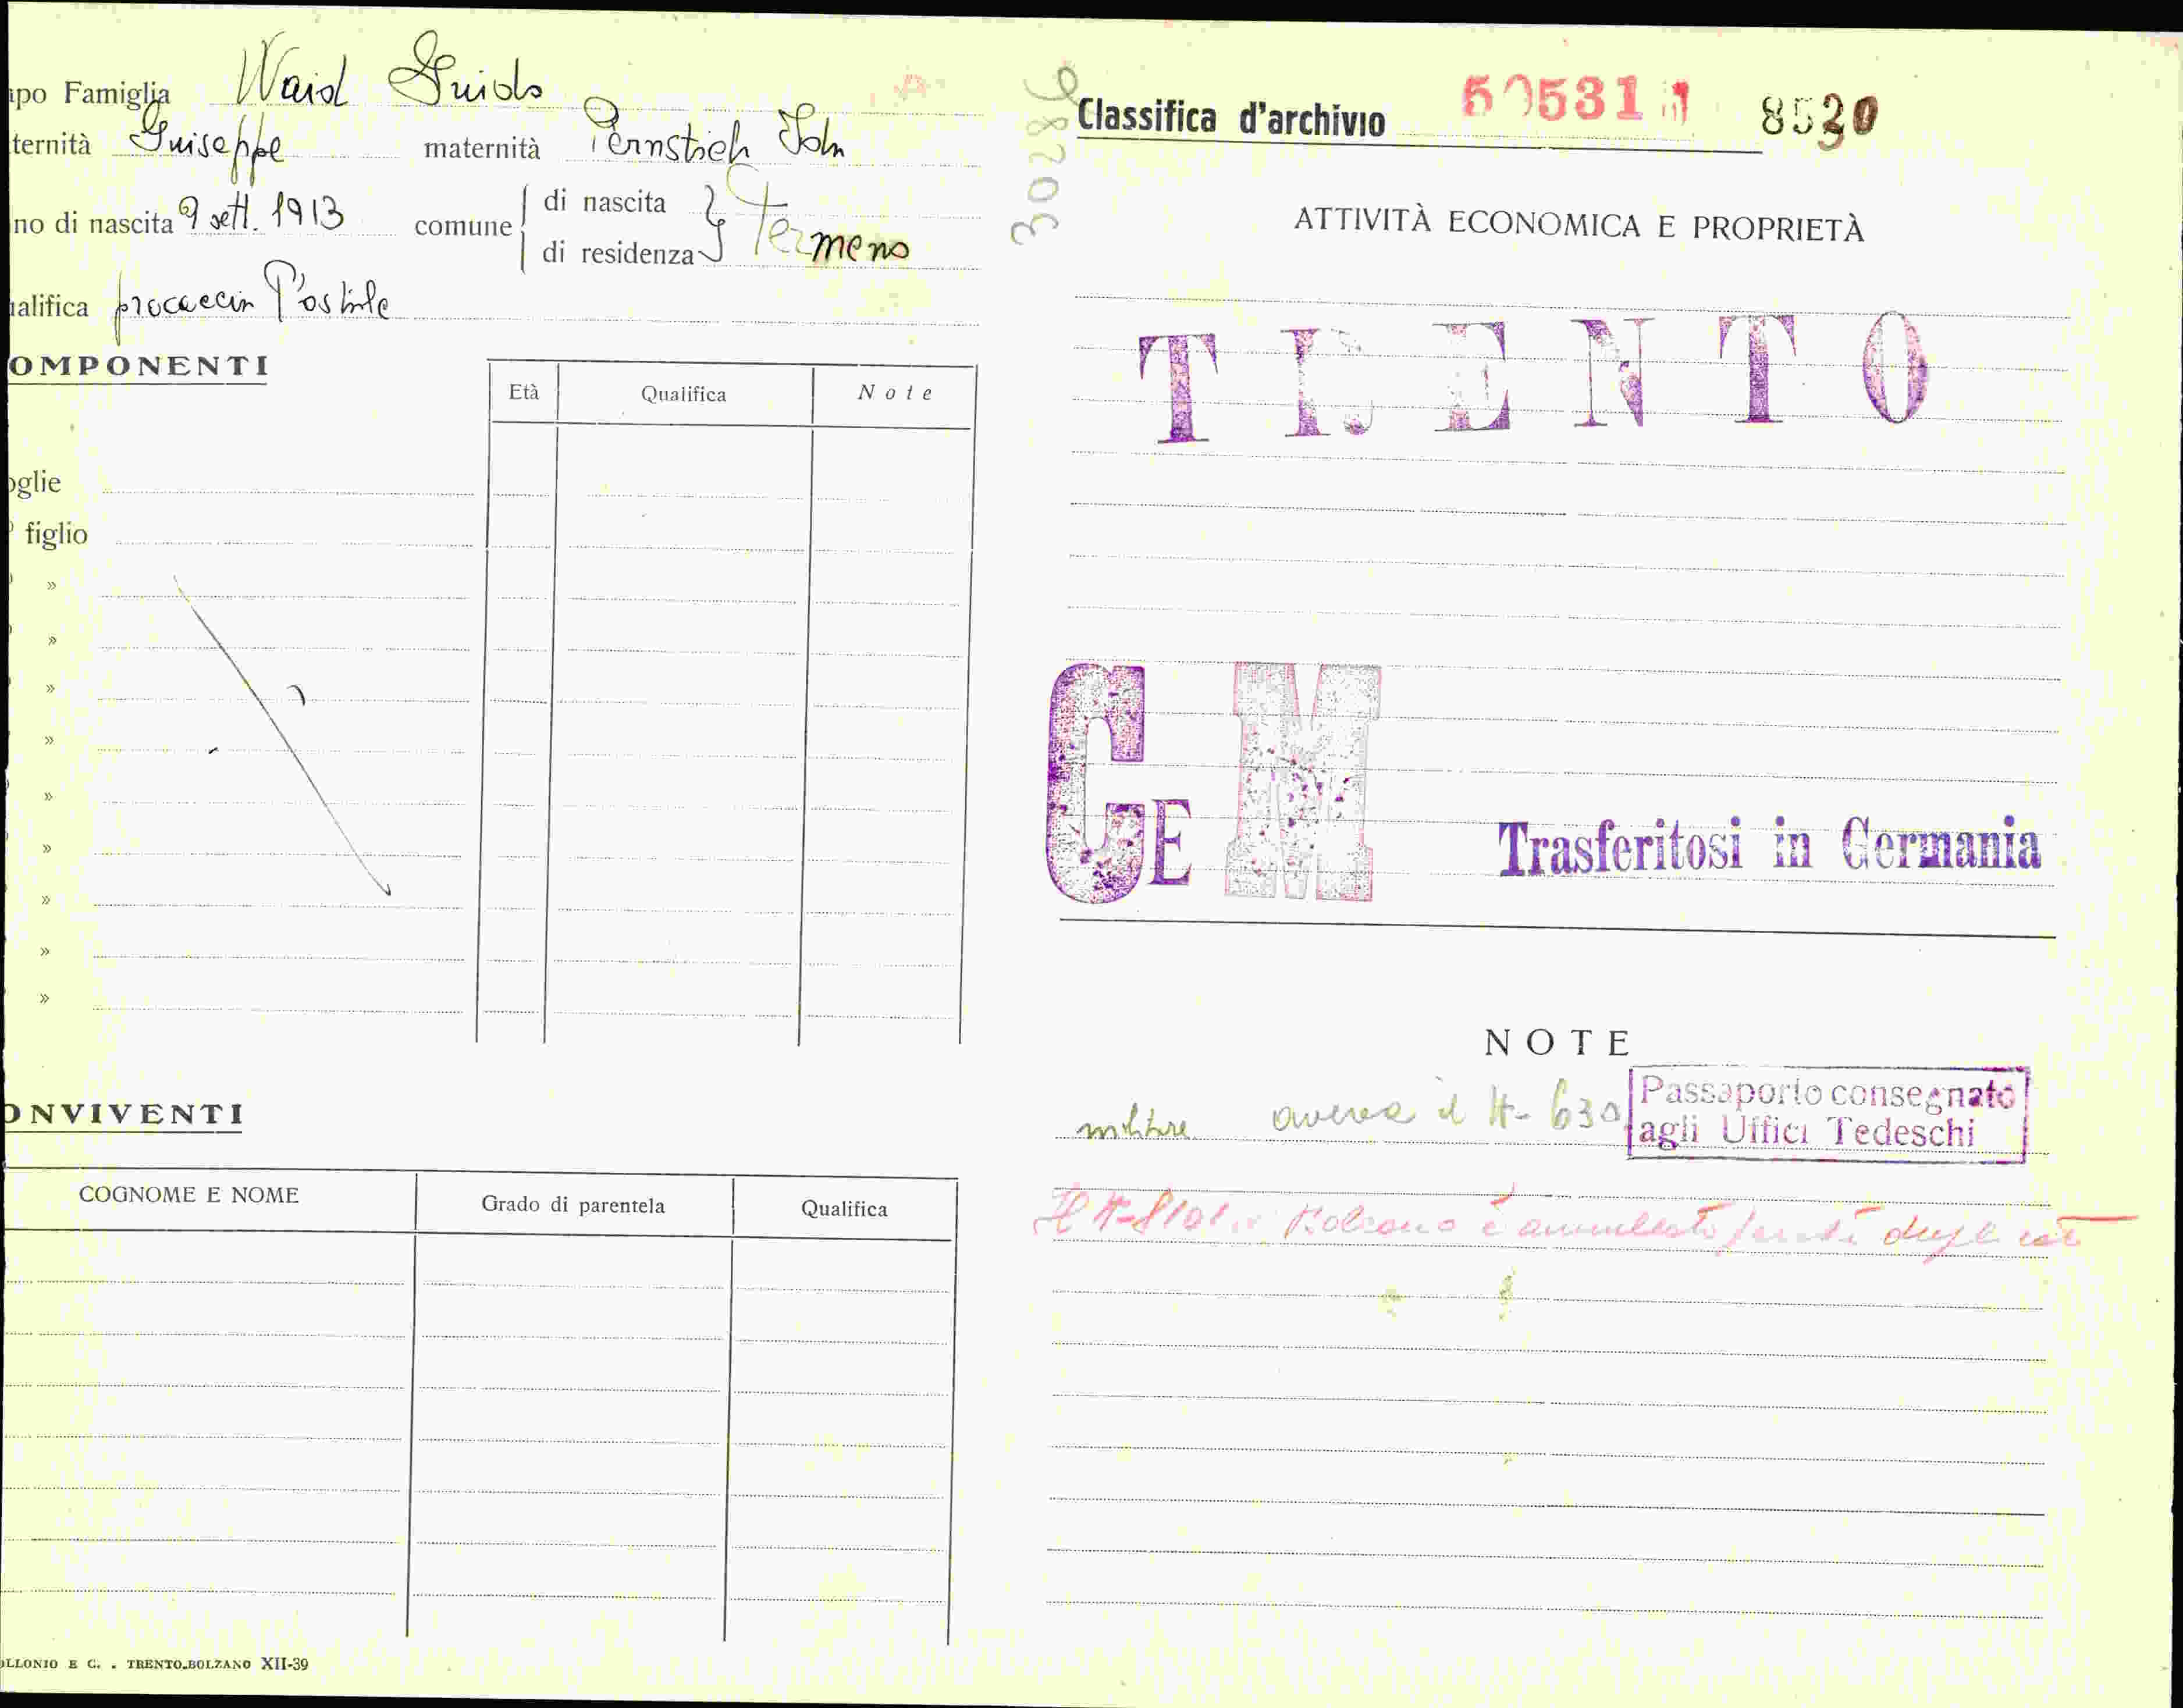 ipo Famiglia Waid Guido
ternità Guiseppe maternità Pernstich
no di nascita 9 sett. 1913 comune di nascita
di residenza Termeno
alifica procaccia Postale
OMPONENTI
Età Qualifica Note
oglie
figlio
»
»
»
»
»
»
»
»
»
ONVIVENTI
COGNOME E NOME Grado di parentela Qualifica
OLLONIO E C. - TRENTO-BOLZANO XII-39
30286
Classifica d'archivio 8530
ATTIVITÀ ECONOMICA E PROPRIETÀ
TRENTO
GE M
Trasferitosi in Germania
NOTE
militare aveva il H- 630
Passaporto consegnato
agli Uffici Tedeschi
Il H-8101 Bolzano è annullato